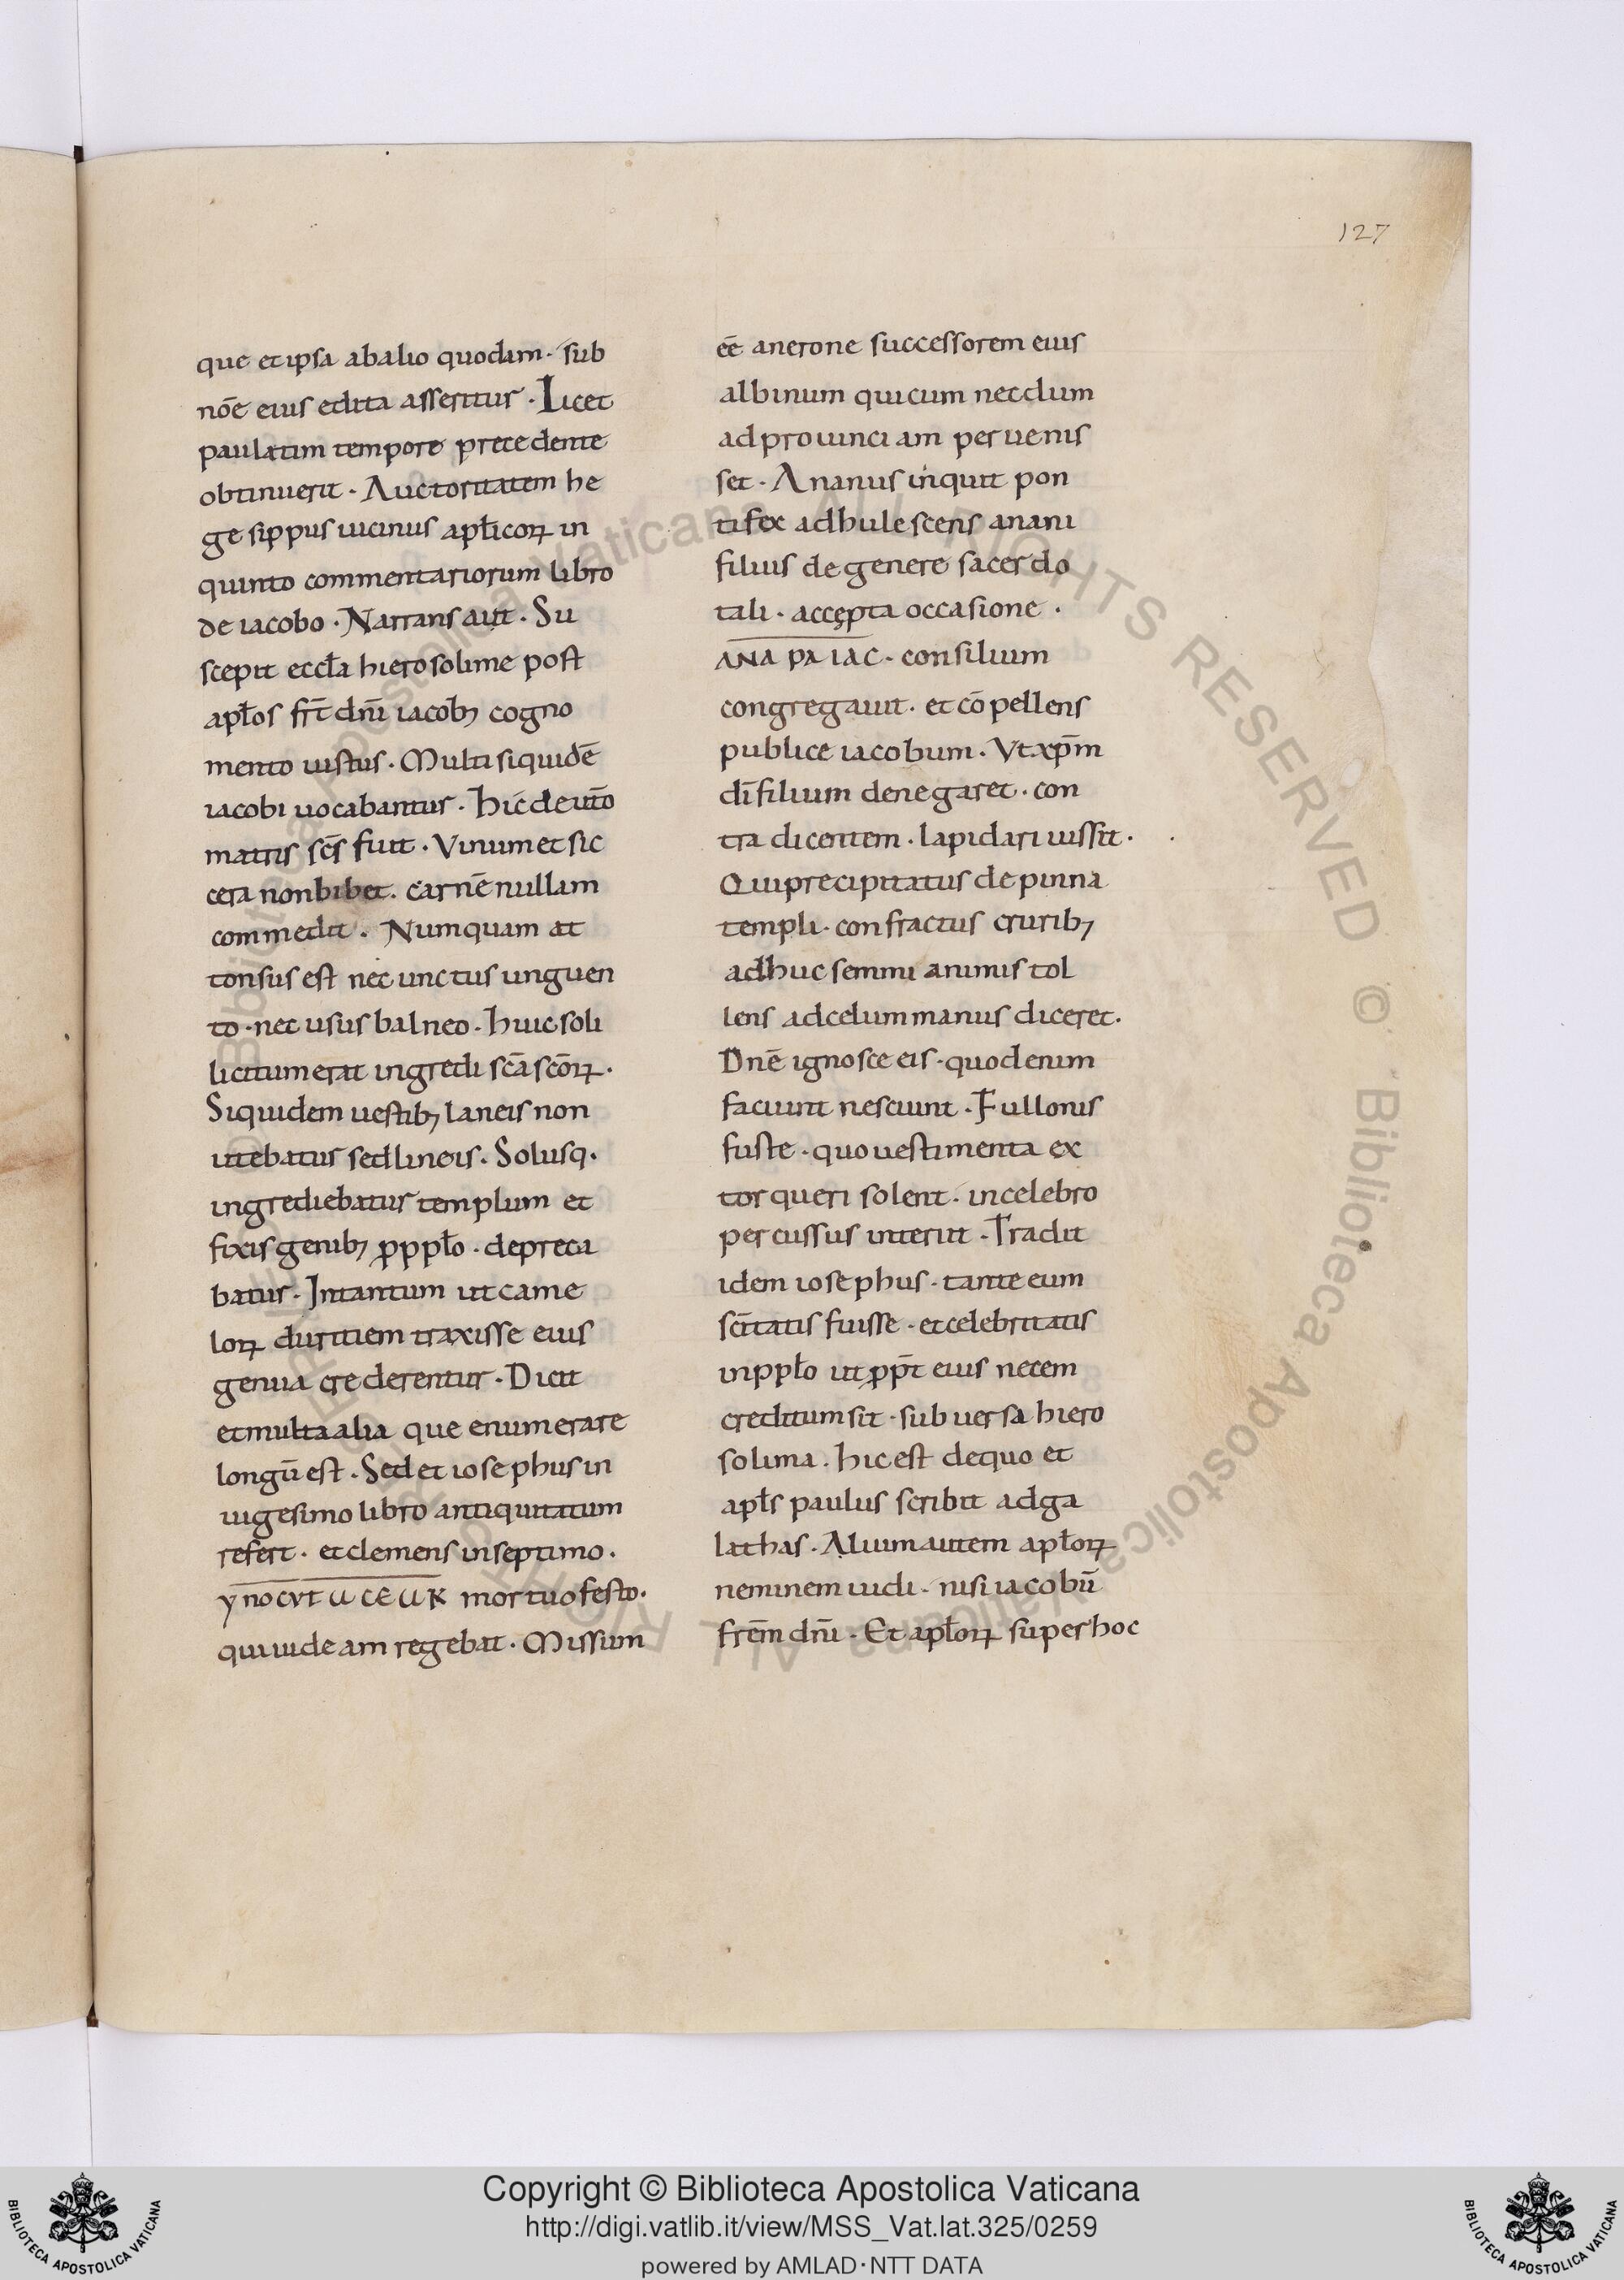 127
que et ipsa abalio quodam · sub
nōe eius edita asseritur · Licet
paulatim tempore precedente
obtinuerit · Auctoritatem he
gesippus uicinus apłicoꝝ in
quinto commentariorum libro
de iacobo · Narrans ait · Su
scepit eccła hierosolime post
apłos frt̄ dnī iacobꝫ cogno
mento iustus · Multi siquidē
iacobi uocabantur · hic de utō
matris sc̄s fuit · Vinum et sic
cera non bibet · carnē nullam
commedit · Numquam at
tonsus est nec unctus unguen
to · nec usus balneo · huic soli
licitum erat ingredi scā scōꝝ ·
Siquidem uestibꝫ laneis non
utebatur sed lineis · Solusq·
ingrediebatur templum et
fixis genibꝫ ꝓ ppło · depreca
batur · Intantum ut came
loꝝ duritiem traxisse eius
genua crederentur · Dicit
et multa alia que enumerare
longū est · Sed et iosephus in
uigesimo libro antiquitatum
refert · et clemens in septimo ·
mortuo festo ·
qui iudeam regebat · Missum
eē anerone successorem eius
albinum qui cum necdum
ad prouinciam peruenis
set · Ananus inquit pon
tifex adhulescens anani
filius de genere sacerdo
tali · accępta occasione ·
ANA PA IAC · consilium
congregauit · et cōpellens
publice iacobum · Vt xp̄m
dī filium denegaret · con
tradicentem · lapidari iussit ·
Qui precipitatus de pinna
templi · confractus cruribꝫ
adhuc semmi animis tol
lens ad celum manus diceret ·
Dnē ignosce eis · quod enim
faciunt nesciunt · Fullonis
fuste · quo uestimenta ex
torqueri solent · in celebro
percussus interiit · Tradit
idem iosephus · tante eum
scītatis fuisse · et celebritatis
in ppło ut ꝓpt̄ eius necem
creditum sit · subuersa hiero
solima · hic est de quo et
apłs paulus scribit ad ga
lathas · Alium autem apłoꝝ
neminem uidi · nisi iacobū
frēm dnī · Et apłoꝝ super hoc
© Biblioteca Apostolica Vaticana ALL RIGHTS RESERVED
© Biblioteca Apostolica Vaticana ALL RIGHTS RESERVED
Copyright © Biblioteca Apostolica Vaticana
http://digi.vatlib.it/view/MSS_Vat.lat.325/0259
powered by AMLAD·NTT DATA
BIBLIOTECA APOSTOLICA VATICANA
BIBLIOTECA APOSTOLICA VATICANA